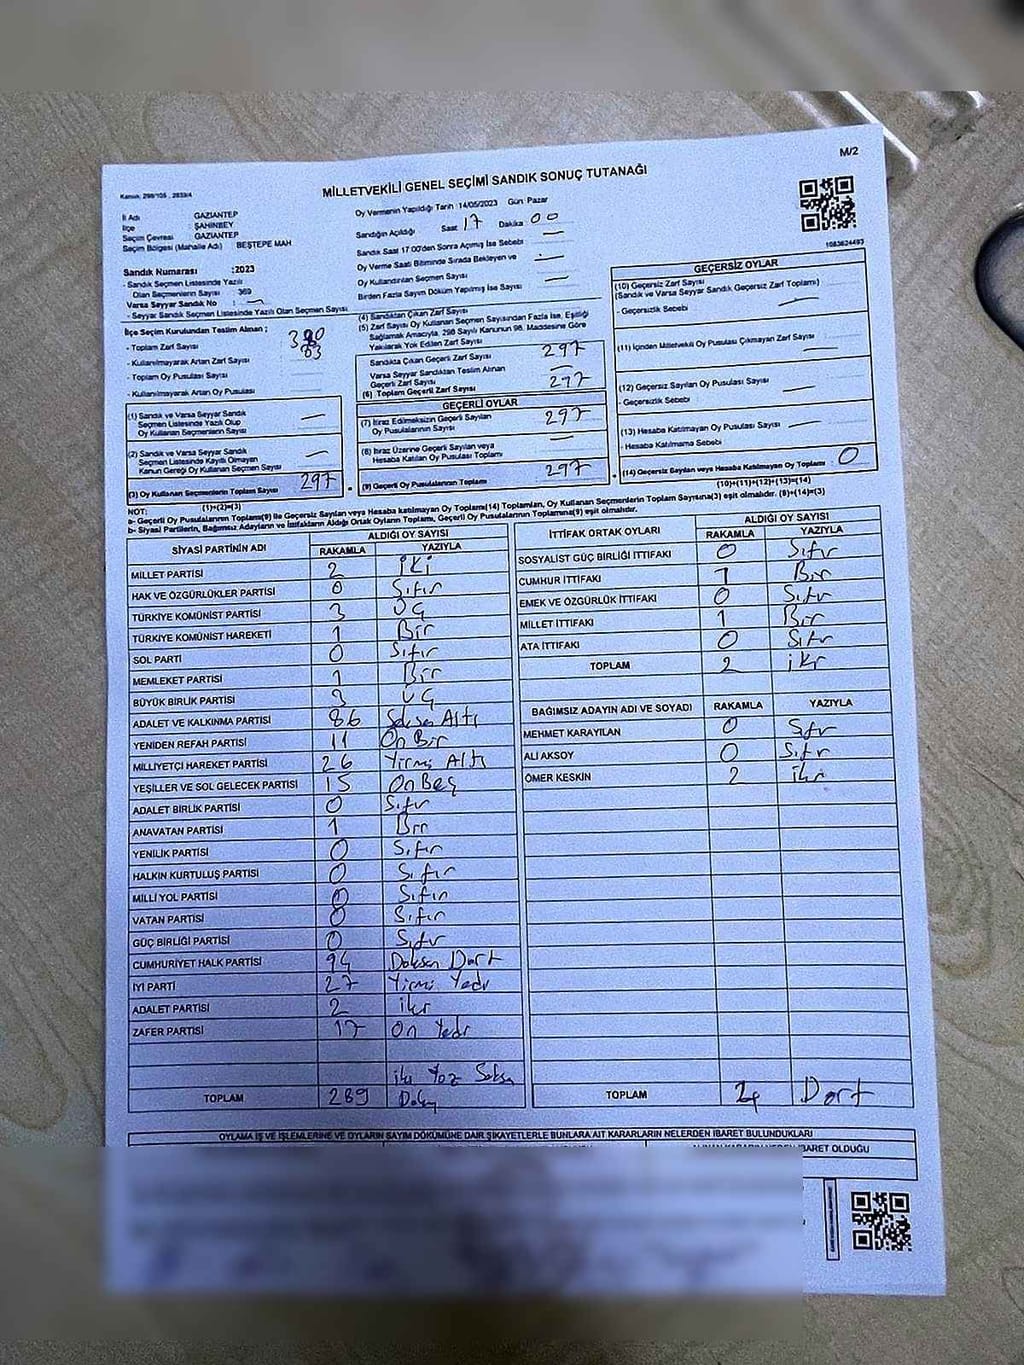 M/2
Kanun: 298/105 , 2839/4
MİLLETVEKİLİ GENEL SEÇİMİ SANDIK SONUÇ TUTANAĞI
1083624493
İl Adı GAZİANTEP
İlçe ŞAHİNBEY
Seçim Çevresi GAZİANTEP
Seçim Bölgesi (Mahalle Adı) BEŞTEPE MAH
Sandık Numarası :2023
- Sandık Seçmen Listesinde Yazılı
Olan Seçmenlerin Sayısı : 369
Varsa Seyyar Sandık No : —
- Seyyar Sandık Seçmen Listesinde Yazılı Olan Seçmen Sayısı
İlçe Seçim Kurulundan Teslim Alınan ;
- Toplam Zarf Sayısı 380
- Kullanılmayarak Artan Zarf Sayısı 83
- Toplam Oy Pusulası Sayısı
- Kullanılmayarak Artan Oy Pusulası
(1) Sandık ve Varsa Seyyar Sandık
Seçmen Listesinde Yazılı Olup
Oy Kullanan Seçmenlerin Sayısı —
(2) Sandık ve Varsa Seyyar Sandık
Seçmen Listesinde Kayıtlı Olmayan
Kanun Gereği Oy Kullanan Seçmen Sayısı —
(3) Oy Kullanan Seçmenlerin Toplam Sayısı 297
(1)+(2)=(3)
Oy Vermenin Yapıldığı Tarih : 14/05/2023 Gün Pazar
Sandığın Açıldığı Saat 17 Dakika 00
Sandık Saat 17:00'den Sonra Açılmış İse Sebebi —
Oy Verme Saati Bitiminde Sırada Bekleyen ve
Oy Kullandırılan Seçmen Sayısı —
Birden Fazla Sayım Döküm Yapılmış İse Sayısı —
(4) Sandıktan Çıkan Zarf Sayısı
(5) Zarf Sayısı Oy Kullanan Seçmen Sayısından Fazla İse, Eşitliği
Sağlamak Amacıyla, 298 Sayılı Kanunun 98. Maddesine Göre
Yakılarak Yok Edilen Zarf Sayısı
Sandıkta Çıkan Geçerli Zarf Sayısı 297
Varsa Seyyar Sandıktan Teslim Alınan
Geçerli Zarf Sayısı —
(6) Toplam Geçerli Zarf Sayısı 297
GEÇERLİ OYLAR
(7) İtiraz Edilmeksizin Geçerli Sayılan
Oy Pusulalarının Sayısı 297
(8) İtiraz Üzerine Geçerli Sayılan veya
Hesaba Katılan Oy Pusulası Toplamı —
(9) Geçerli Oy Pusulalarının Toplamı 297
GEÇERSİZ OYLAR
(10) Geçersiz Zarf Sayısı
(Sandık ve Varsa Seyyar Sandık Geçersiz Zarf Toplamı) —
- Geçersizlik Sebebi
(11) İçinden Milletvekili Oy Pusulası Çıkmayan Zarf Sayısı —
(12) Geçersiz Sayılan Oy Pusulası Sayısı —
- Geçersizlik Sebebi
(13) Hesaba Katılmayan Oy Pusulası Sayısı —
- Hesaba Katılmama Sebebi
(14) Geçersiz Sayılan veya Hesaba Katılmayan Oy Toplamı 0
(10)+(11)+(12)+(13)=(14)
NOT:
a- Geçerli Oy Pusulalarının Toplamı(9) ile Geçersiz Sayılan veya Hesaba katılmayan Oy Toplamı(14) Toplamları, Oy Kullanan Seçmenlerin Toplam Sayısına(3) eşit olmalıdır. (9)+(14)=(3)
b- Siyasi Partilerin, Bağımsız Adayların ve İttifakların Aldığı Ortak Oyların Toplamı, Geçerli Oy Pusulalarının Toplamına(9) eşit olmalıdır.
SİYASİ PARTİNİN ADI ALDIĞI OY SAYISI
RAKAMLA YAZIYLA
MİLLET PARTİSİ 2 iki
HAK VE ÖZGÜRLÜKLER PARTİSİ 0 Sıfır
TÜRKİYE KOMÜNİST PARTİSİ 3 ÜÇ
TÜRKİYE KOMÜNİST HAREKETİ 1 Bir
SOL PARTİ 0 Sıfır
MEMLEKET PARTİSİ 1 Bir
BÜYÜK BİRLİK PARTİSİ 3 ÜÇ
ADALET VE KALKINMA PARTİSİ 86 Seksen Altı
YENİDEN REFAH PARTİSİ 11 On Bir
MİLLİYETÇİ HAREKET PARTİSİ 26 Yirmi Altı
YEŞİLLER VE SOL GELECEK PARTİSİ 15 On Beş
ADALET BİRLİK PARTİSİ 0 Sıfır
ANAVATAN PARTİSİ 1 Bir
YENİLİK PARTİSİ 0 Sıfır
HALKIN KURTULUŞ PARTİSİ 0 Sıfır
MİLLİ YOL PARTİSİ 0 Sıfır
VATAN PARTİSİ 0 Sıfır
GÜÇ BİRLİĞİ PARTİSİ 0 Sıfır
CUMHURİYET HALK PARTİSİ 94 Doksan Dört
İYİ PARTİ 27 Yirmi Yedi
ADALET PARTİSİ 2 iki
ZAFER PARTİSİ 17 On Yedi
TOPLAM 289 iki Yüz Seksen
İTTİFAK ORTAK OYLARI ALDIĞI OY SAYISI
RAKAMLA YAZIYLA
SOSYALİST GÜÇ BİRLİĞİ İTTİFAKI 0 Sıfır
CUMHUR İTTİFAKI 1 Bir
EMEK VE ÖZGÜRLÜK İTTİFAKI 0 Sıfır
MİLLET İTTİFAKI 1 Bir
ATA İTTİFAKI 0 Sıfır
TOPLAM 2 iki
BAĞIMSIZ ADAYIN ADI VE SOYADI RAKAMLA YAZIYLA
MEHMET KARAYILAN 0 Sıfır
ALİ AKSOY 0 Sıfır
ÖMER KESKİN 2 iki
TOPLAM Dört
OYLAMA İŞ VE İŞLEMLERİNE VE OYLARIN SAYIM DÖKÜMÜNE DAİR ŞİKAYETLERLE BUNLARA AİT KARARLARIN NELERDEN İBARET BULUNDUKLARI
İBARET OLDUĞU